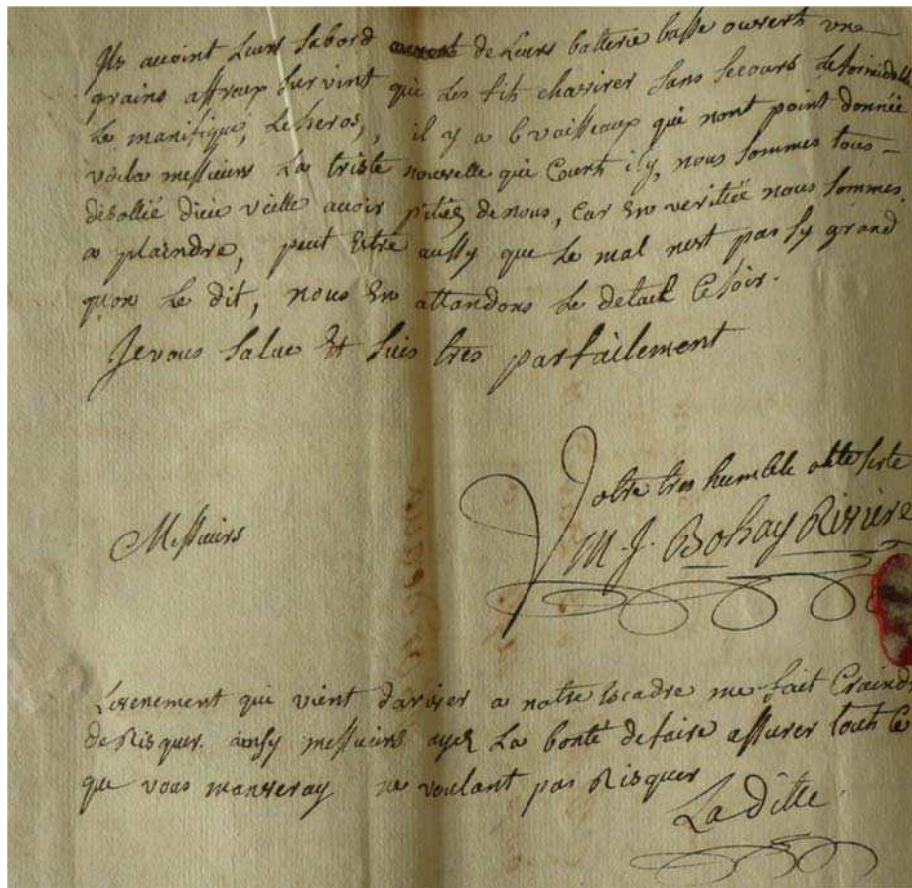 Ils avoint Leurs Sabord de Leurs batterie basse ouverts une
grains affreux Survint qui Les fit chavirer Sans Secours Le formidable
Le manifique, Le heros, il y a 6 vaisseaux qui nont point donnée
voila messieurs La triste nouvelle qui Court icy, nous Sommes tous
désollié dieu veille avoir pitiez de nous, Car En veritiée nous Sommes
a plaindre, peut Estre aussy que Le mal nest pas Sy grand
qu'on Le dit, nous En attandons Le detail Ce Soir.
Je vous Salue Et Suis tres parfaitement
Votre tres humble
Messieurs
M. J. Bohay Rivière
L'evenement qui vient d'ariver a notre Escadre me fait Craind
de Risquer ainsy messieurs ayez La bonté de faire assurer tout Ce
que vous manveray ne voulant pas Risquer
La ditte.